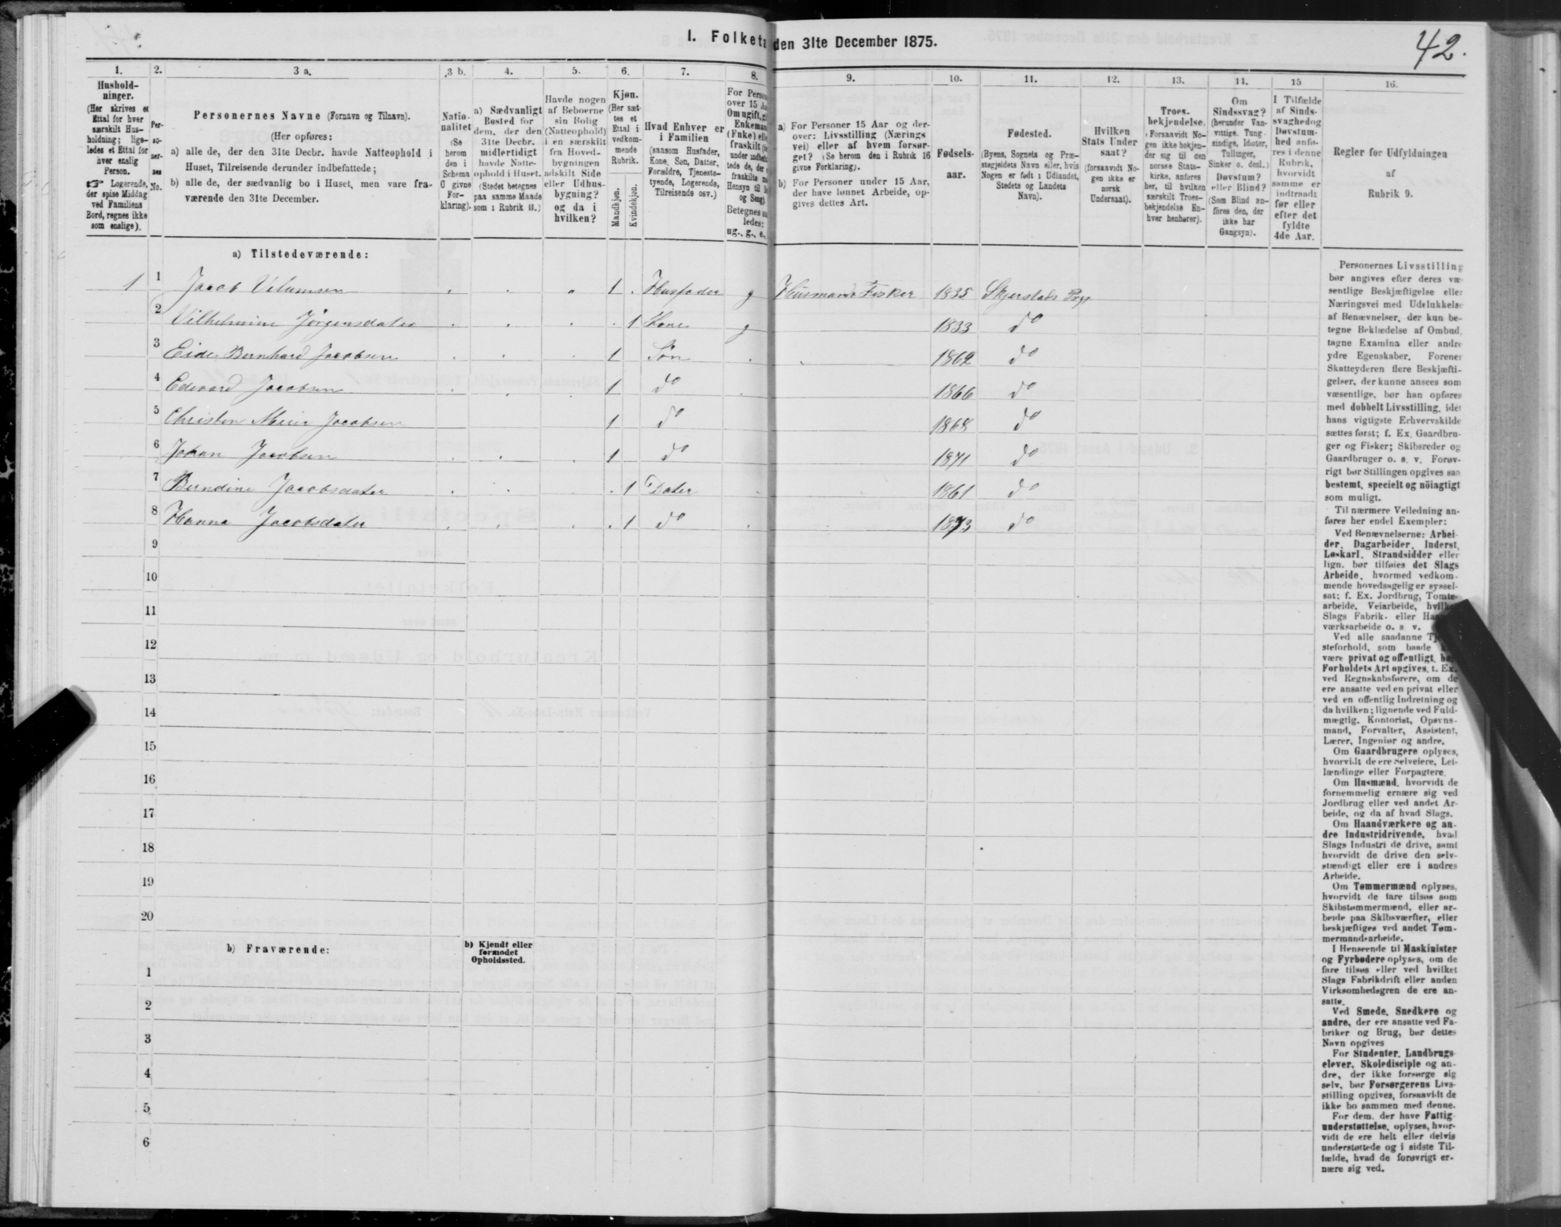 42.
I. Folketa
den 31te December 1875.
1.
Hushold-
ninger.
(Her skrives et
Ettal for hver
særskilt Hus-
holdning; lige-
ledes et Ettal for
hver enslig
Person.
☞ Logerende,
der spise Middag
ved Familiens
Bord, regnes ikke
som enslige).
2.
3 a.
Personernes Navne (Fornavn og Tilnavn).
(Her opføres:
a) alle de, der den 31te Decbr. havde Natteophold i
Huset, Tilreisende derunder indbefattede;
b) alle de, der sædvanlig bo i Huset, men vare fra-
værende den 31te December.
3 b.
Natio-
nalitet
(Se
herom
den i
Schema
O givne
For-
klaring).
4.
a) Sædvanligt
Bosted for
dem, der den
31te Decbr.
midlertidigt
havde Natte-
ophold i Huset.
(Stedet betegnes
paa samme Maade
som i Rubrik 11.)
5.
Havde nogen
af Beboerne
sin Bolig
(Natteophold)
i en særskilt
fra Hoved-
bygningen
adskilt Side
eller Udhus-
bygning?
og da i
hvilken?
6.
Kjøn.
(Her sæt-
tes et
Ettal i
vedkom-
mende
Rubrik.
Mandkjøn.
Kvindekjøn.
7.
Hvad Enhver er
i Familien
(saasom Husfader,
Kone, Søn, Datter,
Forældre, Tjeneste-
tyende, Logerende,
Tilreisende osv.)
8.
For Person
over 15 Aa
Om ugift, g
Enkeman
(Fnke) elle
fraskilt
Betegnes
ledes:
ug., g., e.,
9.
a) For Personer 15 Aar og der-
over: Livsstilling (Nærings
vei) eller af hvem forsør-
get? (Se herom den i Rubrik 16
givne Forklaring).
b) For Personer under 15 Aar,
der have lønnet Arbeide, op-
gives dettes Art.
10.
Fødsels-
aar.
11.
Fødested.
(Byens, Sognets og Præ-
stegjeldets Navn eller, hvis
Nogen er født i Udlandet,
Stedets og Landets
Navn).
12.
Hvilken
Stats Under
saat?
(forsaavidt No-
gen ikke er
norsk
Undersaat).
13.
Troes-
bekjendelse.
(Forsaavidt No-
gen ikke bekjen-
der sig til den
norske Stats-
kirke, anføres
her, til hvilken
særskilt Troes-
bekjendelse En-
hver henhører).
14.
Om
Sindssvag?
(herunder Van-
vittige, Tung-
sindige, Idioter,
Tullinger,
Sinker o. desl.)
Døvstum?
eller Blind?
(Som Blind an-
føres den, der
ikke har
Gangsyn).
15
I Tilfælde
af Sinds-
svaghed og
Døvstum-
hed anfø-
res i denne
Rubrik,
hvorvidt
samme er
indtraadt
før eller
efter det
fyldte
4de Aar.
16.
Regler for Udfyldningen
af
Rubrik 9.
a) Tilstedeværende:
1 1 Jacob Vilumsen 1 Husfader g Husmand Fisker 1835 Skjerstads Prgj
2 Vilhelmine Jørgensdater 1 Kone g 1833 do
3 Eide Bernhard Jacobsen 1 Søn 1862 do
4 Edevard Jacobsen 1 do 1866 do
5 Christen Meier Jacobsen 1 do 1868 do
6 Johan Jacobsen 1 do 1871 do
7 Berndine Jacobsdater 1 Dater 1861 do
8 Hanna Jacobsdater 1 do 1873 do
9
10
11
12
13
14
15
16
17
18
19
20
b) Fraværende:
b) Kjendt eller
formodet
Opholdssted.
1
2
3
4
5
6
Personernes Livsstilling
bør angives efter deres væ-
sentlige Beskjæftigelse eller
Næringsvei med Udelukkelse
af Benævnelser, der kun be-
tegne Beklædelse af Ombud,
tagne Examina eller andre
ydre Egenskaber. Forener
Skatteyderen flere Beskjæfti-
gelser, der kunne ansees som
væsentlige, bør han opføres
med dobbelt Livsstilling, idet
hans vigtigste Erhvervskilde
sættes først; f. Ex. Gaardbru-
ger og Fisker; Skibsreder og
Gaardbruger o. s. v. Forøv-
rigt bør Stillingen opgives saa
bestemt, specielt og nöiagtigt
som muligt.
Til nærmere Veiledning an-
føres her endel Exempler:
Ved Benævnelserne: Arbei-
der, Dagarbeider, Inderst,
Løskarl, Strandsidder eller
lign. bør tilføies det Slags
Arbeide, hvormed vedkom-
mende hovedsagelig er syssel-
sat; f. Ex. Jordbrug, Tomte-
arbeide, Veiarbeide, hvilket
Slags Fabrik- eller Ha
værksarbeide o. s. v.
Ved alle saadanne Tj
steforhold, som baade
være privat og offentligt,
Forholdets Art opgives, t. Ex.
ved Regnskabsførere, om de
ere ansatte ved en privat eller
ved en offentlig Indretning og
da hvilken; lignende ved Fuld-
mægtig, Kontorist, Opsyns-
mand, Forvalter, Assistent,
Lærer, Ingeniør og andre.
Om Gaardbrugere oplyses,
hvorvidt de ere Selveiere, Lei-
lændinge eller Forpagtere.
Om Husmænd, hvorvidt de
fornemmelig ernære sig ved
Jordbrug eller ved andet Ar-
beide, og da af hvad Slags.
Om Haandværkere og an-
dre Industridrivende, hvad
Slags Industri de drive, samt
hvorvidt de drive den selv-
stændigt eller ere i andres
Arbeide.
Om Tømmermænd oplyses,
hvorvidt de fare tilsøs som
Skibstømmermænd, eller ar-
beide paa Skibsværfter, eller
beskjæftiges ved andet Tøm-
mermandsarbeide.
I Henseende til Maskinister
og Fyrbødere oplyses, om de
fare tilsøs eller ved hvilket
Slags Fabrikdrift eller anden
Virksomhedsgren de ere an-
satte.
Ved Smede, Snedkere og
andre, der ere ansatte ved Fa-
briker og Brug, bør dettes
Navn opgives
For Studenter, Landbrugs-
elever, Skoledisciple og an-
dre, der ikke forsørge sig
selv, bør Forsørgerens Livs-
stilling opgives, forsaavidt de
ikke bo sammen med denne.
For dem, der have Fattig-
understøttelse, oplyses, hvor-
vidt de ere helt eller delvis
understøttede og i sidste Til-
fælde, hvad de forøvrigt er-
nære sig ved.